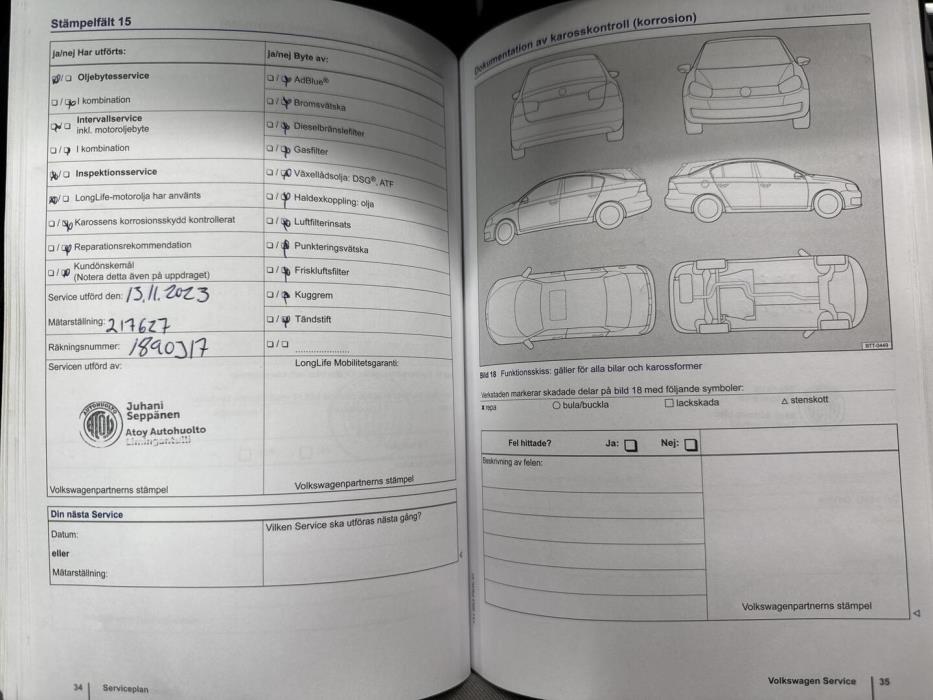 Stämpelfält 15
ja/nej Har utförts:
☒/☐ Oljebytesservice
☐/☒ I kombination
☒/☐ Intervallservice
inkl. motoroljebyte
☐/☒ I kombination
☒/☐ Inspektionsservice
☒/☐ LongLife-motorolja har använts
☐/☒ Karossens korrosionsskydd kontrollerat
☐/☒ Reparationsrekommendation
☐/☒ Kundönskemål
(Notera detta även på uppdraget)
Service utförd den: 13.11.2023
Mätarställning: 217627
Räkningsnummer: 1890317
Servicen utförd av:
AUTOHUOLTO
Atoy
Juhani
Seppänen
Atoy Autohuolto
Volkswagenpartnerns stämpel
ja/nej Byte av:
☐/☒ AdBlue®
☐/☒ Bromsvätska
☐/☒ Dieselbränslefilter
☐/☒ Gasfilter
☐/☒ Växellådsolja: DSG®, ATF
☐/☒ Haldexkoppling: olja
☐/☒ Luftfilterinsats
☐/☒ Punkteringsvätska
☐/☒ Friskluftsfilter
☐/☒ Kuggrem
☐/☒ Tändstift
☐/☐ ....................
LongLife Mobilitetsgaranti:
Volkswagenpartnerns stämpel
Din nästa Service
Datum:
eller
Mätarställning:
Vilken Service ska utföras nästa gång?
34 | Serviceplan
Dokumentation av karosskontroll (korrosion)
BTT-0449
Bild 18 Funktionsskiss: gäller för alla bilar och karossformer
Verkstaden markerar skadade delar på bild 18 med följande symboler:
x repa ○ bula/buckla ☐ lackskada △ stenskott
Fel hittade? Ja: ☐ Nej: ☐
Beskrivning av felen:
Volkswagenpartnerns stämpel
Volkswagen Service | 35